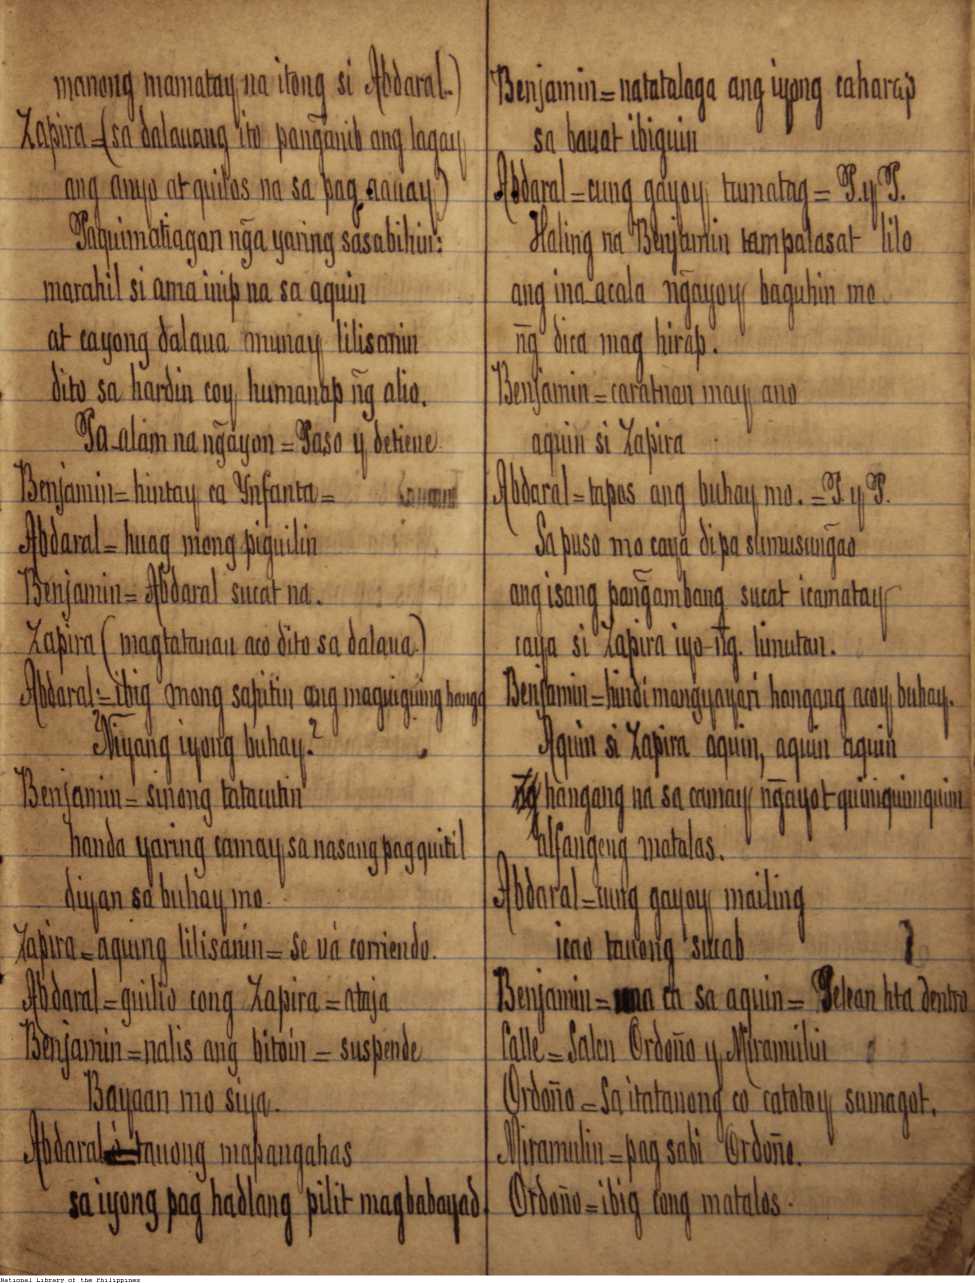 manong mamatay na itong si Abdaral.)
Zapira=(sa dalauang ito pang̃anib ang lagay
ang anyo at quilos na sa pag aauay)
Paquimatiagan ng̃a yaring sasabihin:
marahil si ama inip na sa aquin
at cayong dalaua munay lilisanin
dito sa hardin coy humanap n͠g alio.
Pa-alam na ng̃ayon = Paso y detiene
Benjamin= hintay ca Ynfanta=
Abdaral= huag mong piguilin
Benjamin= Abdaral sucat na.
Zapira (magtatanan aco dito sa dalaua.)
Abdaral= ibig mong sapitin ang maguiguing hanga
Niyang iyong buhay?
Benjamin= sinong tatacutin
handa yaring camay sa nasang pag quitil
diyan sa buhay mo.
Zapira= aquing lilisanin= Se vá corriendo.
Abdaral= guilio cong Zapira= ataja
Benjamin= nalis ang bitoin = suspende
Bayaan mo siya.
Abdaral= tauong mapangahas
sa iyong pag hadlang pilit magbabayad
Benjamin= natatalaga ang iyong caharap
sa bauat ibiguin
Abdaral= cung gayoy tumatag= P. y P.
Haling na Benjamin tampalasat lilo
ang ina-acala ng̃ayoy baguhin mo
n͠g dica mag hirap.
Benjamin= caratnan may ano
aquin si Zapira
Abdaral= tapos ang buhay mo. = P. y P.
Sa puso mo caya dipa sumusung̃ao
ang isang pang̃ambang sucat icamatay
caya si Zapira iyo n͠g. limutan.
Benjamin= hindi mangyayari hangang acoy buhay.
Aquin si Zapira aquin, aquin aquin
hangang na sa camay ng̃ayot quiniquimquim
alfangeng matalas.
Abdaral= cung gayoy mailing
icao tauong sucab
Benjamin= una ca sa aquin= Pelean hta dentro
Calle= Salen Ordoño y Miramulin
Ordoño= Sa itatanong co catotoy sumagot.
Miramulin= pag sabi Ordoño.
Ordoño= ibig cong matalos.
National Library of the Philippines